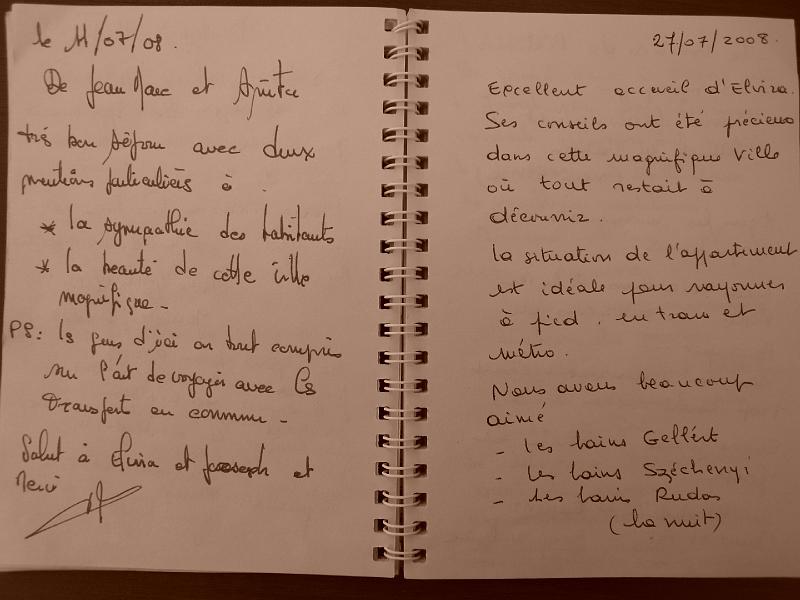 le 11/07/08.
De Jean Marc et
très bon séjour avec deux
mentions particulières à
* la sympathie des habitants
* la beauté de cette ville
magnifique -
PS: les gens d'ici on tout compris
sur l'art de voyager avec les
transfert en commun -
Salut à Elvira et Jooseph et
Merci
27/07/2008.
Excellent accueil d'Elvira.
Ses conseils ont été précieux
dans cette magnifique ville
où tout restait à
découvrir.
la situation de l'appartement
est idéale pour rayonner
à pied, en tram et
métro.
Nous avons beaucoup
aimé
- les bains Gellért
- les bains Széchenyi
- les bains Rudas
(la nuit)